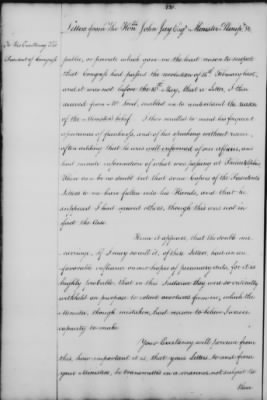 Letters from The Honble John Jay Esqr Minister Plenipo &c
To His Excellency The
President of Congress
public, or private which gave me the least room to suspect
that Congress had passed the resolution of 16th February last,
and it was not before the 10th May, that a Letter, I then
received from Mr Lovel, enabled me to understand the reason
of the Ministers belief. I then recolled to mind his frequent
expressions of frankness, and of his speaking without reserve,
often adding that he was well informed of our affairs, and
had minute information of what was passing at Philadelphia
There can be no doubt but that some copies of the Presidents
Letters to me have fallen into his Hands, and that he
supposed I had received others, though this was not in
fact the Case.
Hence it appears, that the double mis-
carriage, if I may so call it, of these Letters, had an un-
favorable influence on our hopes of pecuniary aids, for it is
highly probable that in this Instance they were so critically
withheld on purpose to extort overtures from me, which the
Minister, though mistaken, had reason to believe I was in
capacity to make.
Your Excellency will perceive from
this, how important it is, that your Letters, to and from
your Ministers, be transmitted in a manner not subject to
these